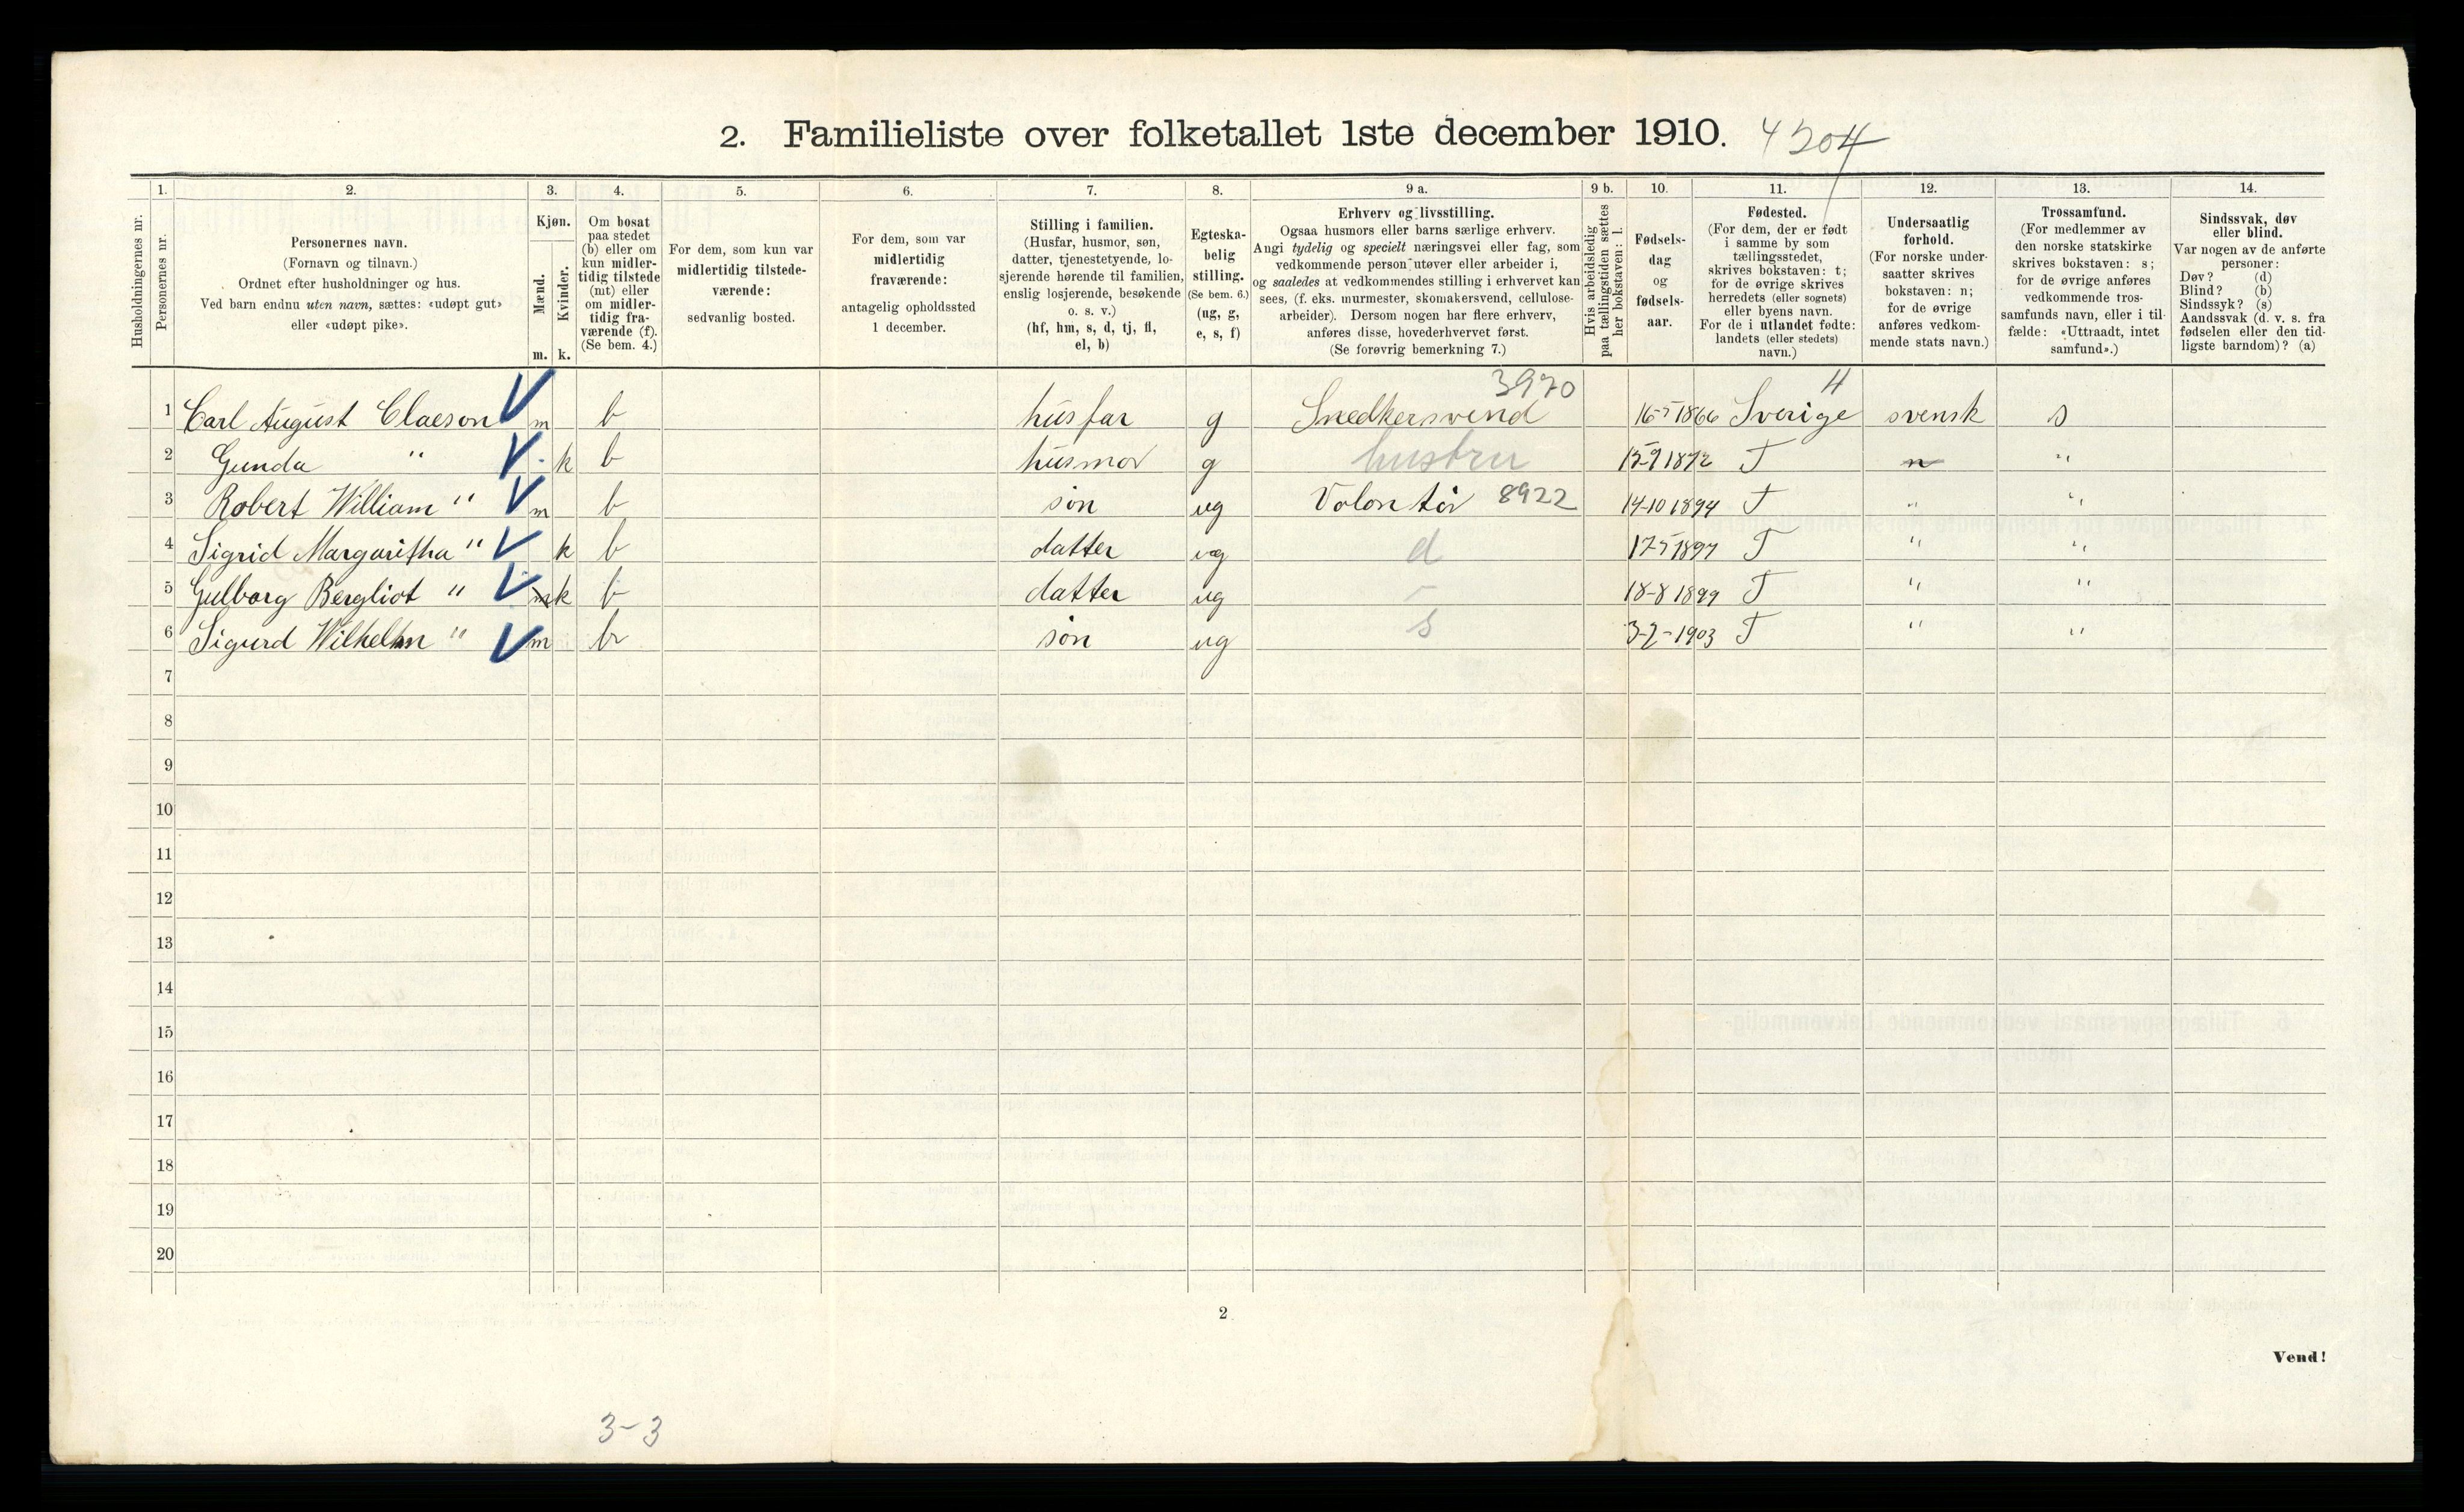 2. Familieliste over folketallet 1ste december 1910. 4204
1. 2. 3. 4. 5. 6. 7. 8. 9 a. 9 b. 10. 11. 12. 13. 14.
Husholdningernes nr.
Personernes nr.
Personernes navn.
(Fornavn og tilnavn.)
Ordnet efter husholdninger og hus.
Ved barn endnu uten navn, sættes: «udøpt gut»
eller «udøpt pike».
Kjøn.
Mænd.
Kvinder.
m. k.
Om bosat
paa stedet
(b) eller om
kun midler-
tidig tilstede
(mt) eller
om midler-
tidig fra-
værende (f).
(Se bem. 4.)
For dem, som kun var
midlertidig tilstede-
værende:
sedvanlig bosted.
For dem, som var
midlertidig
fraværende:
antagelig opholdssted
1 december.
Stilling i familien.
(Husfar, husmor, søn,
datter, tjenestetyende, lo-
sjerende hørende til familien,
enslig losjerende, besøkende
o. s. v.)
(hf, hm, s, d, tj, fl,
el, b)
Egteska-
belig
stilling.
(Se bem. 6.)
(ug, g,
e, s, f)
Erhverv og livsstilling.
Ogsaa husmors eller barns særlige erhverv.
Angi tydelig og specielt næringsvei eller fag, som
vedkommende person utøver eller arbeider i,
og saaledes at vedkommendes stilling i erhvervet kan
sees, (f. eks. murmester, skomakersvend, cellulose-
arbeider). Dersom nogen har flere erhverv,
anføres disse, hovederhvervet først.
(Se forøvrig bemerkning 7.)
Hvis arbeidsledig
paa tællingstiden sættes
her bokstaven: l.
Fødsels-
dag
og
fødsels-
aar.
Fødested.
(For dem, der er født
i samme by som
tællingsstedet,
skrives bokstaven: t;
for de øvrige skrives
herredets (eller sognets)
eller byens navn.
For de i utlandet fødte:
landets (eller stedets)
navn.)
Undersaatlig
forhold.
(For norske under-
saatter skrives
bokstaven: n;
for de øvrige
anføres vedkom-
mende stats navn.)
Trossamfund.
(For medlemmer av
den norske statskirke
skrives bokstaven: s;
for de øvrige anføres
vedkommende tros-
samfunds navn, eller i til-
fælde: «Uttraadt, intet
samfund».)
Sindssvak, døv
eller blind.
Var nogen av de anførte
personer:
Døv? (d)
Blind? (b)
Sindssyk? (s)
Aandssvak (d. v. s. fra
fødselen eller den tid-
ligste barndom)? (a)
3970 4
1 Carl August Claeson V m b husfar g Snedkersvend 16-5 1866 Sverige svensk s
2 Gunda " V k b husmor g hustru 15-9 1872 T n "
3 Robert William " V m b søn ug Volontør 8922 14-10 1894 T " "
4 Sigrid Margaritha " V k b datter ug d 17-5 1897 T " "
5 Gulborg Bergliot " V m k b datter ug - 18-8 1899 T " "
6 Sigurd Wilhelm " V m b søn ug s 3-2-1903 T " "
7
8
9
10
11
12
13
14
15
16
17
18
19
20
2
Vend!
3-3